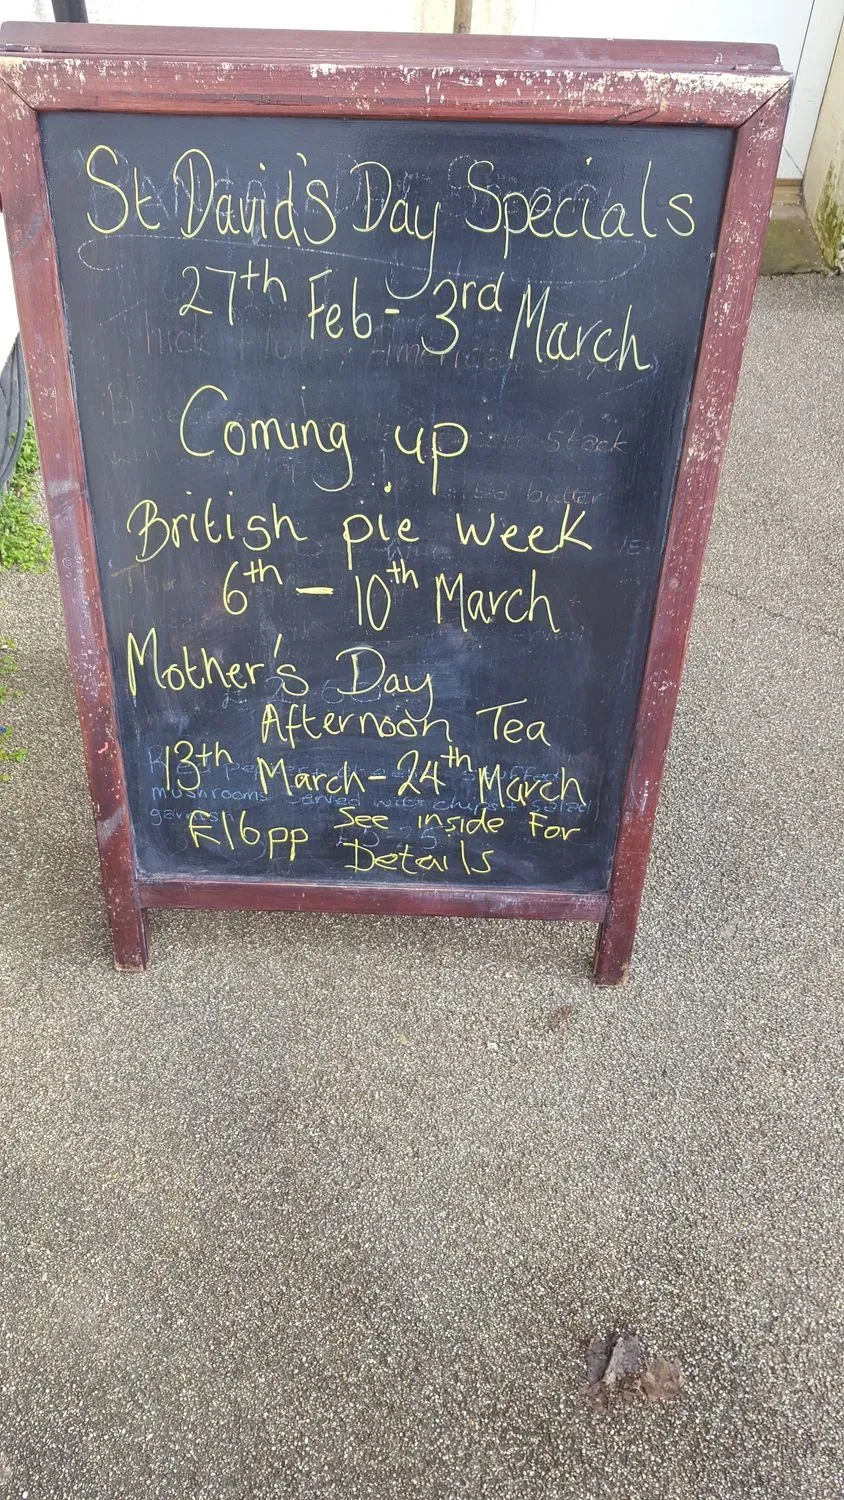 St David's Day Specials
27th Feb - 3rd March
Coming up
British pie week
6th - 10th March
Mother's Day
Afternoon Tea
13th March - 24th March
mushrooms served with chips + salad
£16pp See inside For
Details